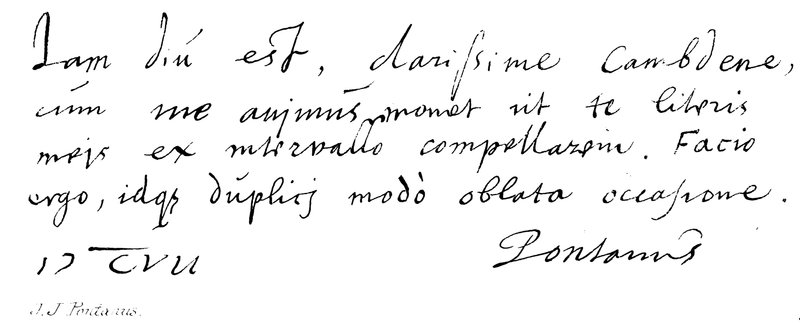 Iam diú est, clarissime Cambdene,
cúm me anjmús monet ut te literis
mejs ex intervallo compellarem. Facio
ergo, idqȝ dúplicj modò oblata occasione.
Pontanús
J. J Pontanus.